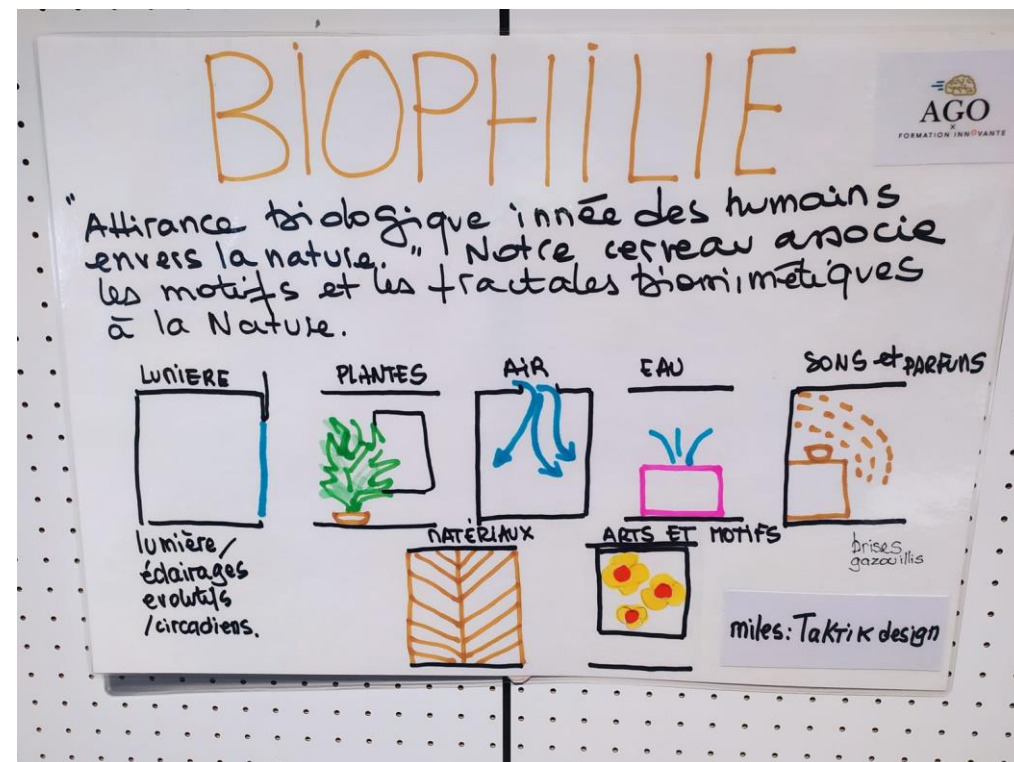 BIOPHILIE
AGO
x
FORMATION INNOVANTE
"Attirance biologique innée des humains
envers la nature." Notre cerveau associe
les motifs et les fractales biomimétiques
à la Nature.
LUMIERE
PLANTES
AIR
EAU
SONS et PARFUMS
lumière/
éclairages
evolutifs
/circadiens.
MATÉRIAUX
ARTS ET MOTIFS
brises
gazouillis
miles: Taktik design